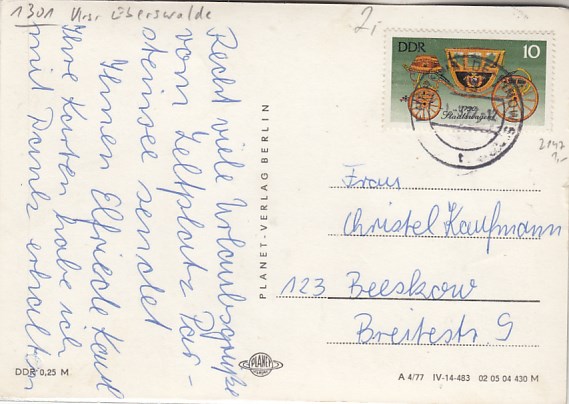 1301 Krsr Eberswalde
2,-
Recht viele Urlaubsgrüße
vom Zeltplatz Par-
steinsee sendet
Ihnen Elfriede
Ihre Karten habe ich
mit Dank erhalten
PLANET-VERLAG BERLIN
DDR 10
1790
Stadtwagen
2147
1,-
Frau
Christel Kaufmann
123 Beeskow
Breitestr. 9
DDR 0,25 M
PLANET
A 4/77 IV-14-483 02 05 04 430 M